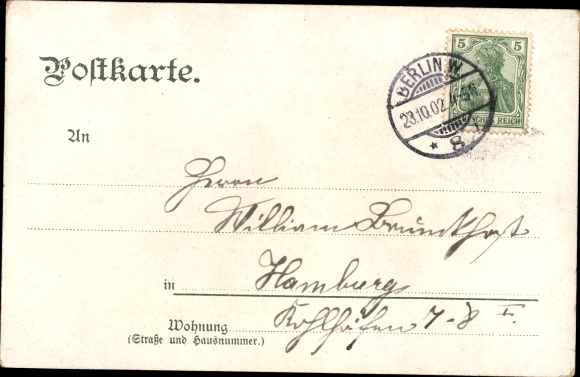 Postkarte.
5 5
BERLIN W.
23.10.02.
* 8
REICH
An
Herrn
William
in Hamburg
Wohnung Kohlhöfen 7-8 I.
(Straße und Hausnummer.)